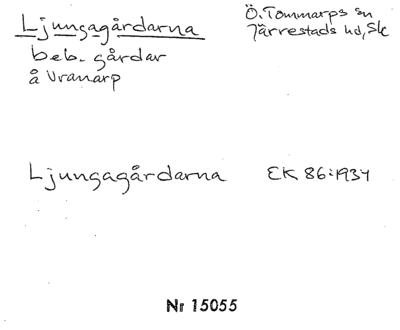 Ljungagårdarna
beb. gårdar
å Vranarp
Ö. Tommarps sn
Järrestads hd, Sk
Ljungagårdarna EK 86:1934
Nr 15055